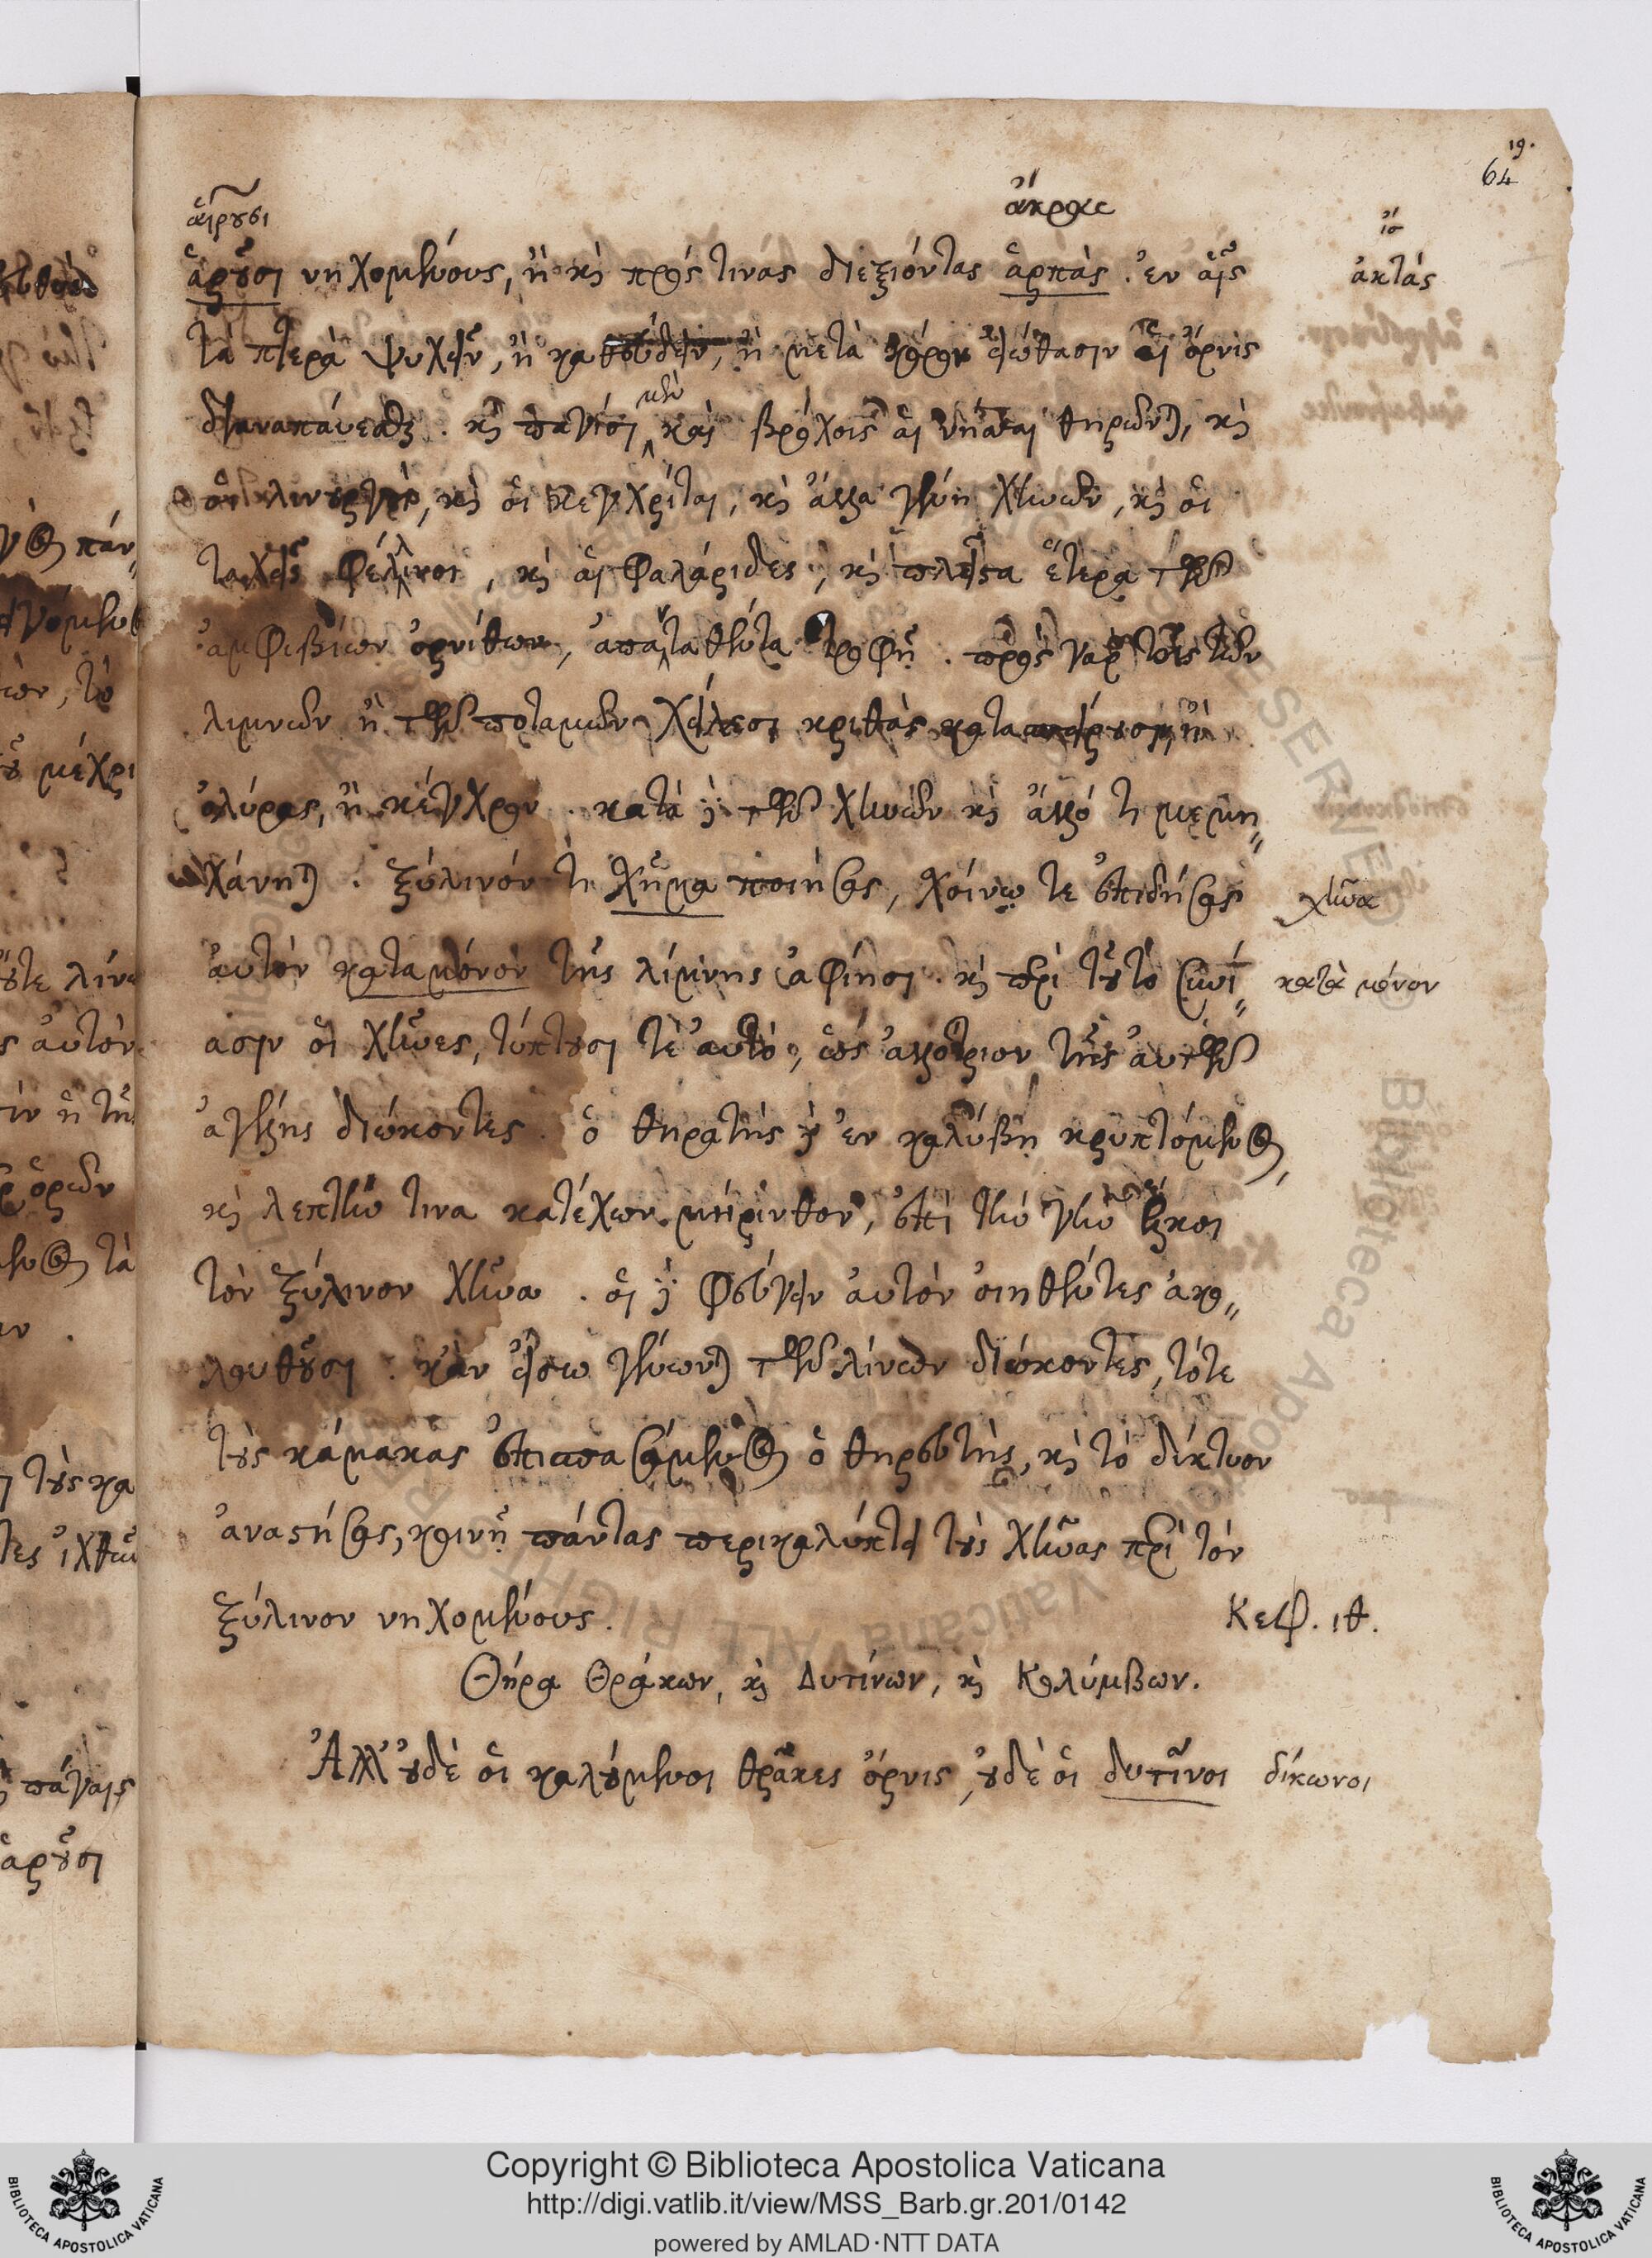 19.
64
αἱροῦσι
ἄκρας
ἁροῦσι νηχομένους, ἢ καὶ πρός τινας διεξιόντας ἁρπὰς . ἐν αἷς ἴσ ἀκτάς
τὰ πτερὰ ψύχειν, ἢ καθεύδειν, ἢ μετὰ κόρον εἰώθασιν αἱ ὄρνις
διαναπαύεσθαι . καὶ παγίσι μὲν καὶ βρόχοις αἱ νῆτται θηρῶνται, καὶ
οἱ λινουργοὶ, καὶ οἱ κεγχρῖται, καὶ ἄλλα γένη χηνῶν, καὶ οἱ
ταχεῖς φέλλινοι, καὶ αἱ φαλάριδες, καὶ πλεῖστα ἕτερα τῶν
ἀμφιβίων ὀρνίθων, ἀπατηθέντα τροφῇ . πρὸς γὰρ τοῖς τῶν
λιμνῶν ἢ τῶν ποταμῶν χείλεσι κριθὰς κατασπείρουσιν ἢ
ὀλύρας, ἢ κέγχρον . κατὰ δὲ τῶν χηνῶν καὶ ἄλλό τι μεμη„
χάνηται . ξύλινόν τι χῆμα ποιήσας, σχοίνῳ τε ἐπιδήσας χῆνα
αὐτὸν καταμόνον τῆς λίμνης ἀφίησι . καὶ περὶ τοῦτο συνί„ κατὰ μόνον
ασιν οἱ χῆνες, τύπτουσί τε αὐτό, ὡς ἀλλότριον τῆς αὐτῶν
ἀγέλης διώκοντες . ὁ θηρατὴς δὲ ἐν καλύβῃ κρυπτόμενος,
καὶ λεπτήν τινα κατέχων μήρινθον, ἐπὶ τὴν γῆν ἕλκει
τὸν ξύλινον χῆνα . οἱ δὲ φεύγειν αὐτὸν οἰηθέντες ἀκο„
λουθοῦσι . κἂν εἴσω γένωνται τῶν λίνων διώκοντες, τότε
τοὺς κάμακας ἐπισπασάμενος ὁ θηρευτὴς, καὶ τὸ δίκτυον
ἀναστήσας, κοινῇ πάντας περικαλύπτει τοὺς χῆνας περὶ τὸν
ξύλινον νηχομένους.
Κεφ. ιθ.
Θήρα Θράκων, καὶ Δυτίνων, καὶ Κολύμβων.
Ἀλλ' οὐδὲ οἱ καλούμενοι θρᾶκες ὄρνις, οὐδὲ οἱ δυτῖνοι δίκωνοι
Copyright © Biblioteca Apostolica Vaticana
http://digi.vatlib.it/view/MSS_Barb.gr.201/0142
powered by AMLAD·NTT DATA
BIBLIOTECA APOSTOLICA VATICANA
BIBLIOTECA APOSTOLICA VATICANA